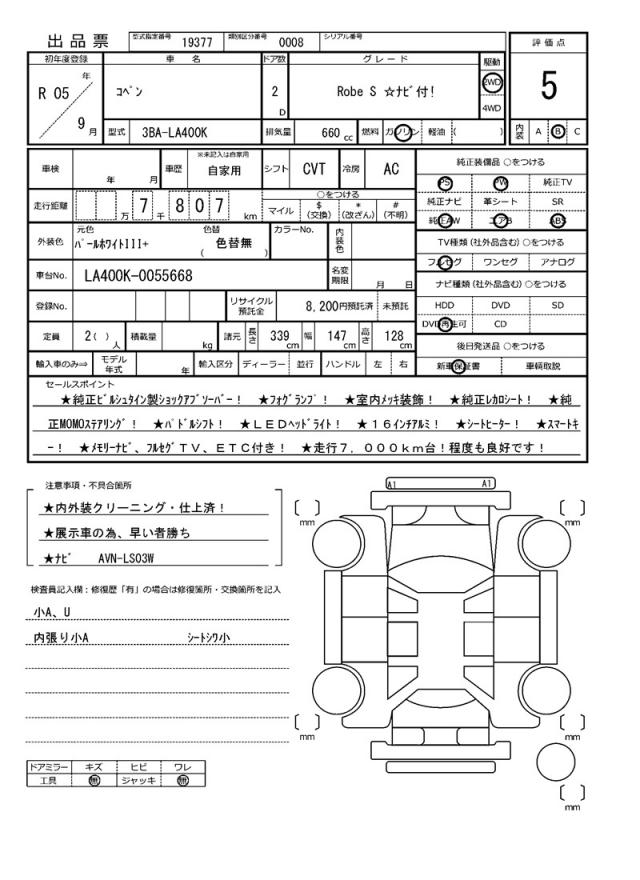 出品票 型式指定番号 19377 類別区分番号 0008 シリアル番号
評価点
5
内装 A B C
初年度登録 車名 ドア数 グレード 駆動
R 05 年 9 月 コペン 2 D Robe S ☆ナビ付! 2WD 4WD
型式 3BA-LA400K 排気量 660 cc 燃料 ガソリン 軽油 ( )
車検 年 月 車歴 ※未記入は自家用 自家用 シフト CVT 冷房 AC
走行距離 万 7 千 8 0 7 km ○をつける マイル $(交換) *(改ざん) #(不明)
外装色 元色 パールホワイトIII+ 色替 ( 色替無 ) カラーNo. 内装色
車台No. LA400K-0055668 名変期限 月 日
登録No. リサイクル預託金 8,200円預託済 未預託
定員 2( ) 人 積載量 kg 諸元 長さ 339 cm 幅 147 cm 高さ 128 cm
輸入車のみ⇒ モデル年式 年 輸入区分 ディーラー 並行 ハンドル 左 右
純正装備品 ○をつける
PS PW 純正TV
純正ナビ 革シート SR
純正AW エアB ABS
TV種類(社外品含む)○をつける
フルセグ ワンセグ アナログ
ナビ種類(社外品含む)○をつける
HDD DVD SD
DVD再生可 CD
後日発送品 ○をつける
新車保証書 車輌取説
セールスポイント
★純正ビルシュタイン製ショックアブソーバー! ★フォグランプ! ★室内メッキ装飾! ★純正レカロシート! ★純
正MOMOステアリング! ★パドルシフト! ★LEDヘッドライト! ★16インチアルミ! ★シートヒーター! ★スマートキ
ー! ★メモリーナビ、フルセグTV、ETC付き! ★走行7,000km台!程度も良好です!
注意事項・不具合箇所
★内外装クリーニング・仕上済!
★展示車の為、早い者勝ち
★ナビ AVN-LS03W
検査員記入欄:修復歴「有」の場合は修復箇所・交換箇所を記入
小A、U
内張り小A シートシワ小
ドアミラー キズ ヒビ ワレ
工具 無 ジャッキ 無
A1 A1
[ ] mm [ ] mm
[ ] mm [ ] mm
[ ] mm